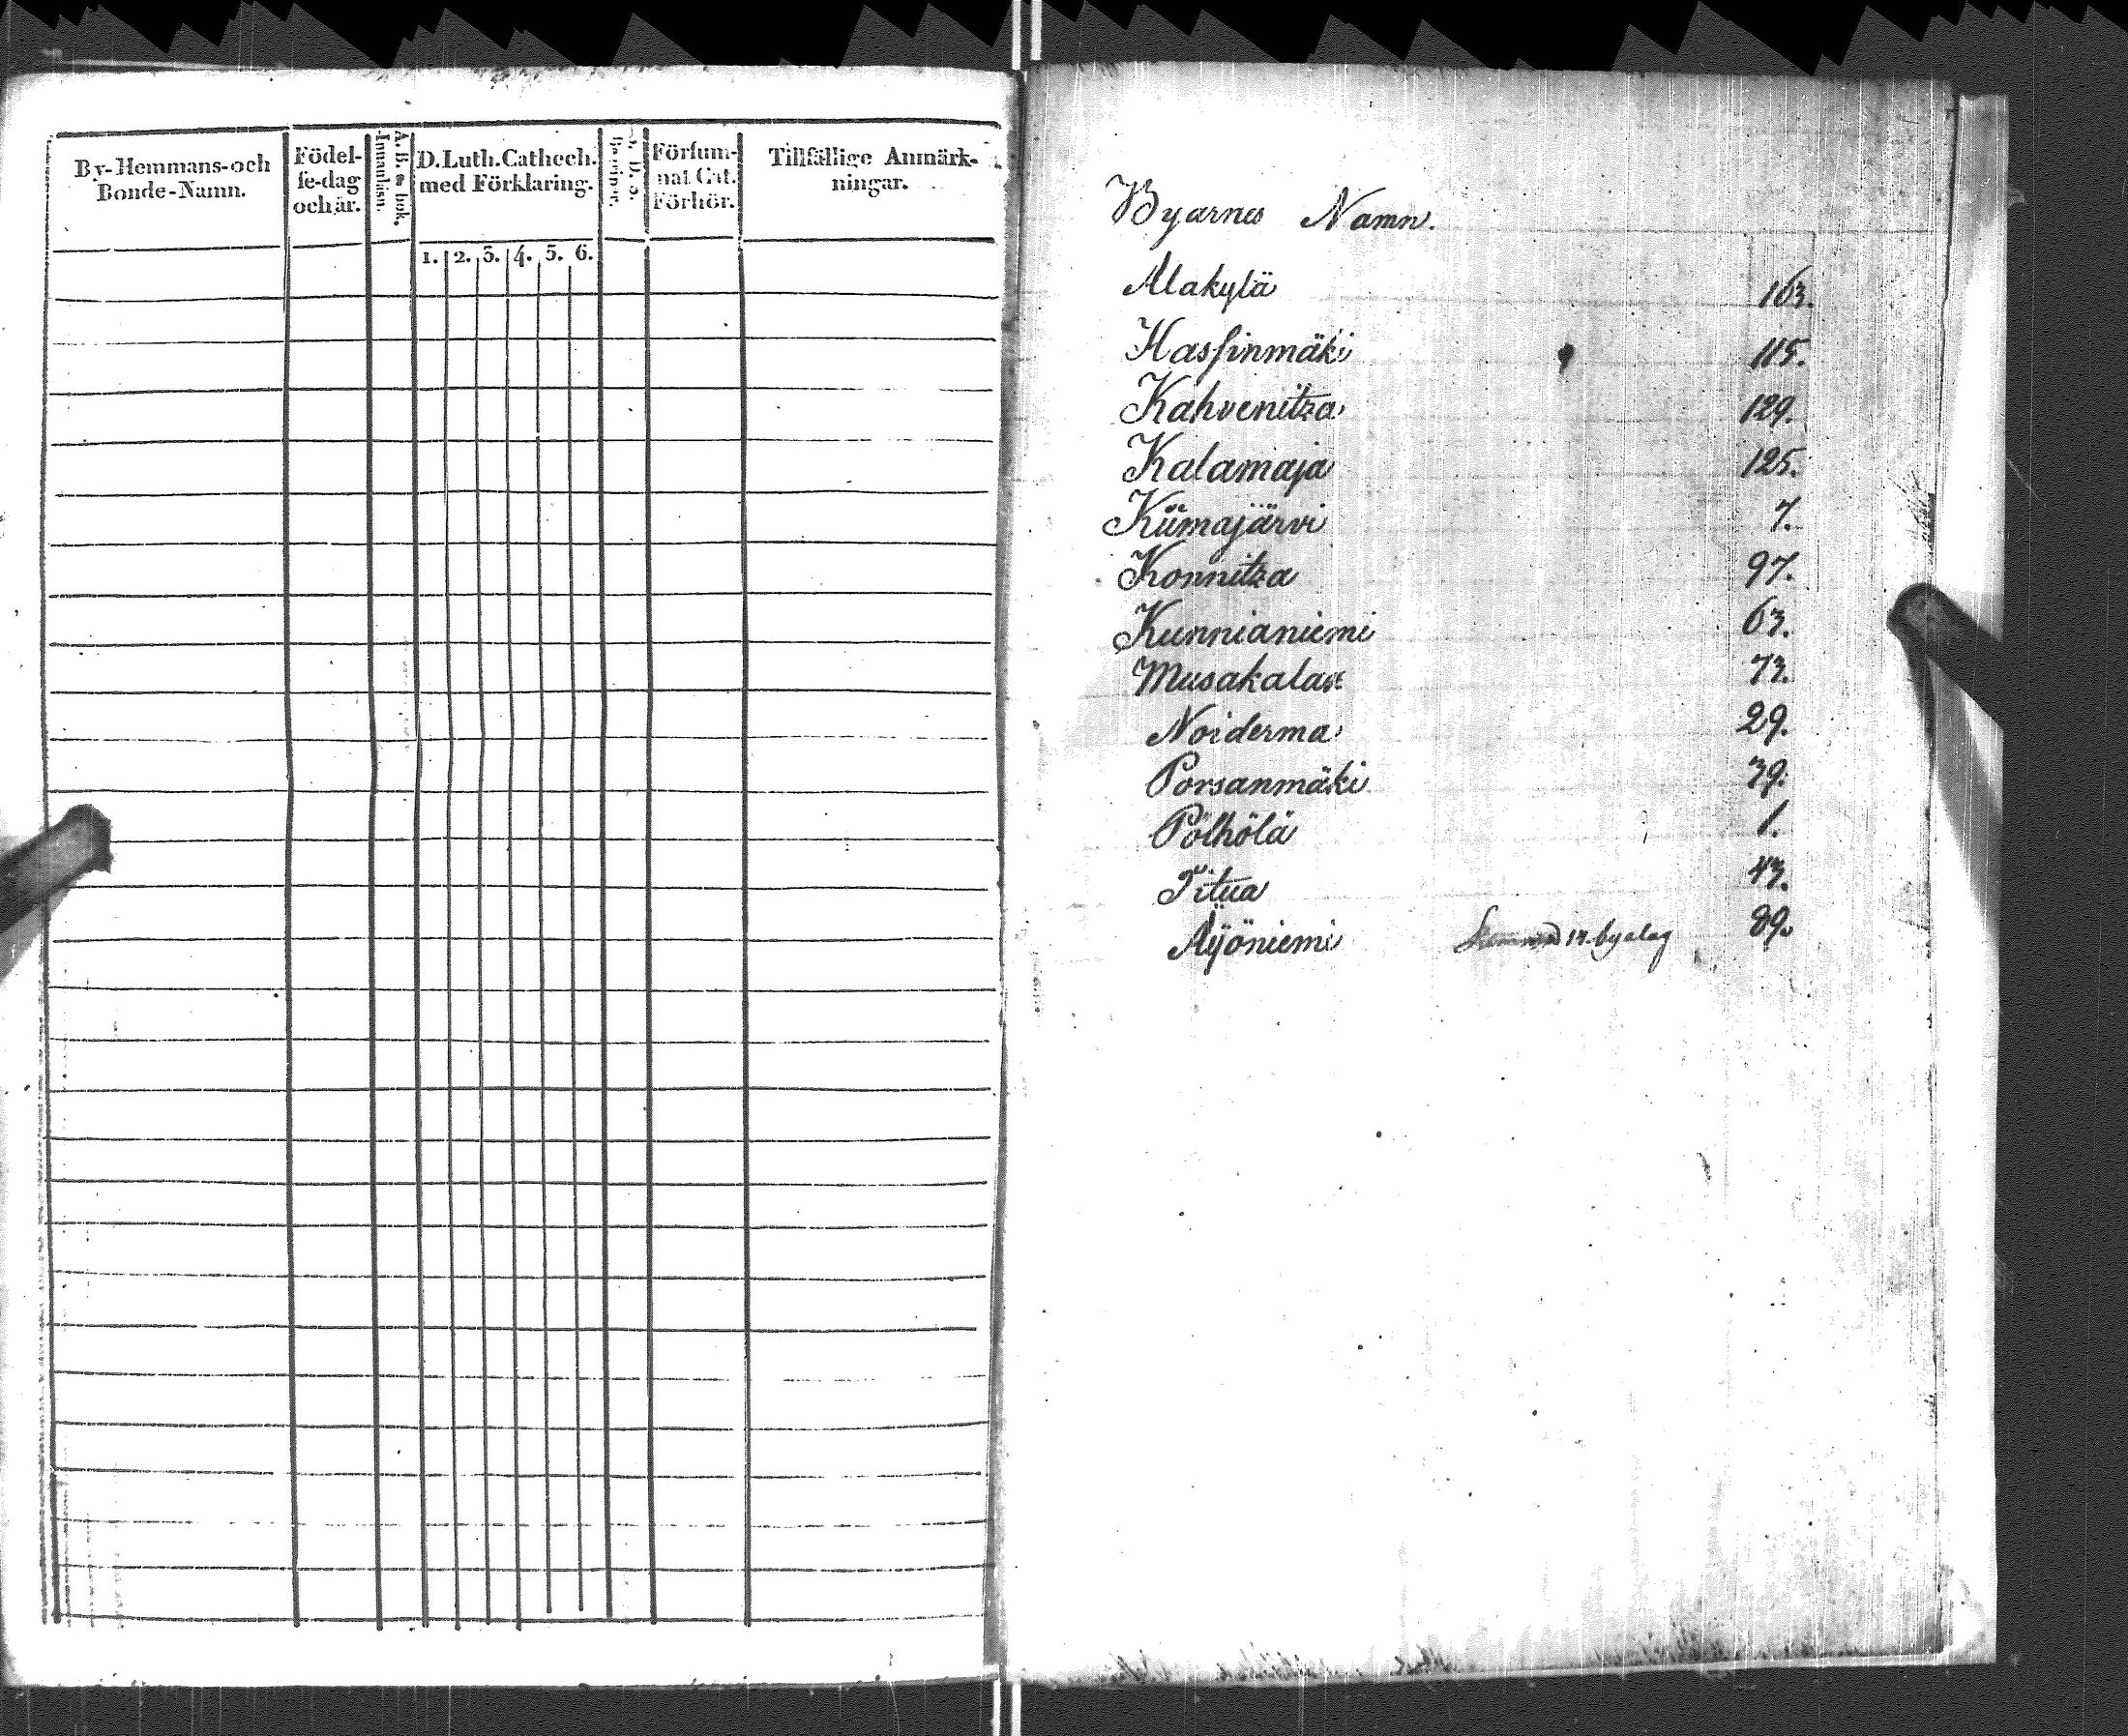 By-Hemmans-och
Bonde-Namn.
Födel-
se-dag
och år.
A. B. C bok.
Innanläsn.
D. Luth. Cathech.
med Förklaring.
1. 2. 3. 4. 5. 6.
Försum-
mat Cat.
Förhör.
Tillfällige Anmärk-
ningar.
Byarnes Namn.
Alakylä 163.
Hassinmäki 115.
Kahvenitza 129.
Kalamaja 125.
Kiimajärvi 7.
Konnitza 97.
Kunnianiemi 63.
Musakalax 73.
Noiderma 29.
Porsanmäki 39.
Pölhölä 1.
Titua 43.
Äijöniemi 14. byalag 89.